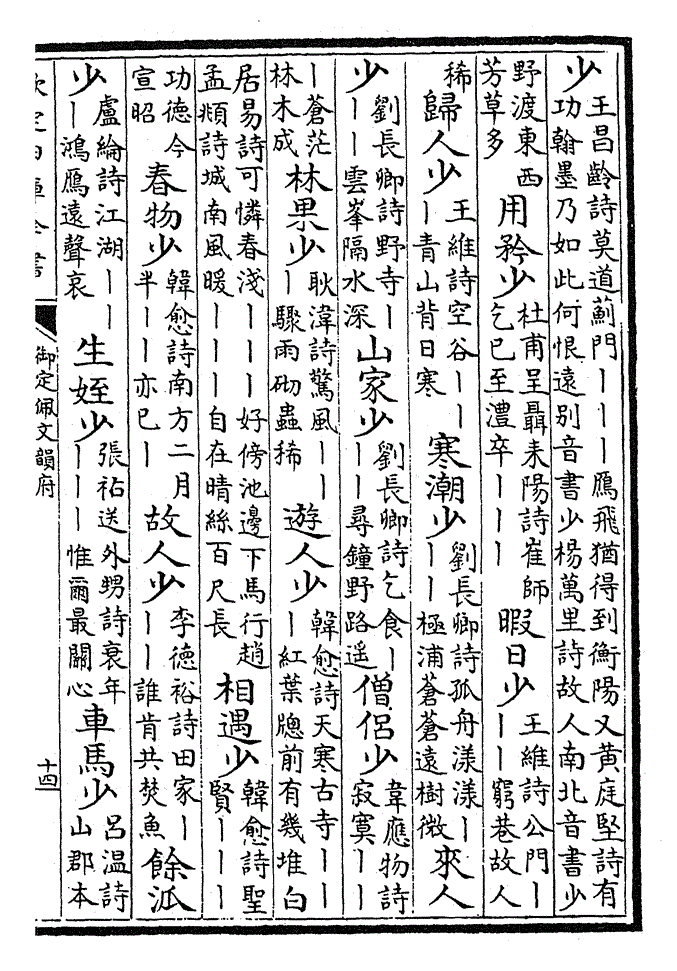 少王昌齡詩莫道薊門丨丨丨鴈飛猶得到衡陽又黃庭堅詩有功翰墨乃如此何恨遠別音書少楊萬里詩故人南北音書少
野渡東西芳草多用矜少杜甫呈聶耒陽詩崔師乞已至澧卒丨丨丨暇日少王維詩公門丨丨丨窮巷故人
稀歸人少王維詩空谷丨丨丨青山背日寒寒潮少劉長卿詩孤舟漾漾丨丨丨極浦蒼蒼遠樹微來人
少劉長卿詩野寺丨丨丨雲峯隔水深山家少劉長卿詩乞食丨丨丨尋鐘野路遥僧侶少韋應物詩寂寞丨丨
丨蒼茫林木成林果少耿湋詩驚風丨丨丨驟雨砌蟲稀遊人少韓愈詩天寒古寺丨丨丨紅葉牕前有幾堆白
居易詩可憐春淺丨丨丨好傍池邊下馬行趙孟頫詩城南風暖丨丨丨自在晴絲百尺長相遇少韓愈詩聖賢丨丨丨
功德今宣昭春物少韓愈詩南方二月半丨丨亦已丨故人少李德裕詩田家丨丨丨誰肯共焚魚餘泒
少盧綸詩江湖丨丨丨鴻鴈遠聲哀生姪少張祜送外甥詩衰年丨丨丨惟爾最關心車馬少呂温詩山郡本
欽定四庫全書
御定佩文韻府
十四